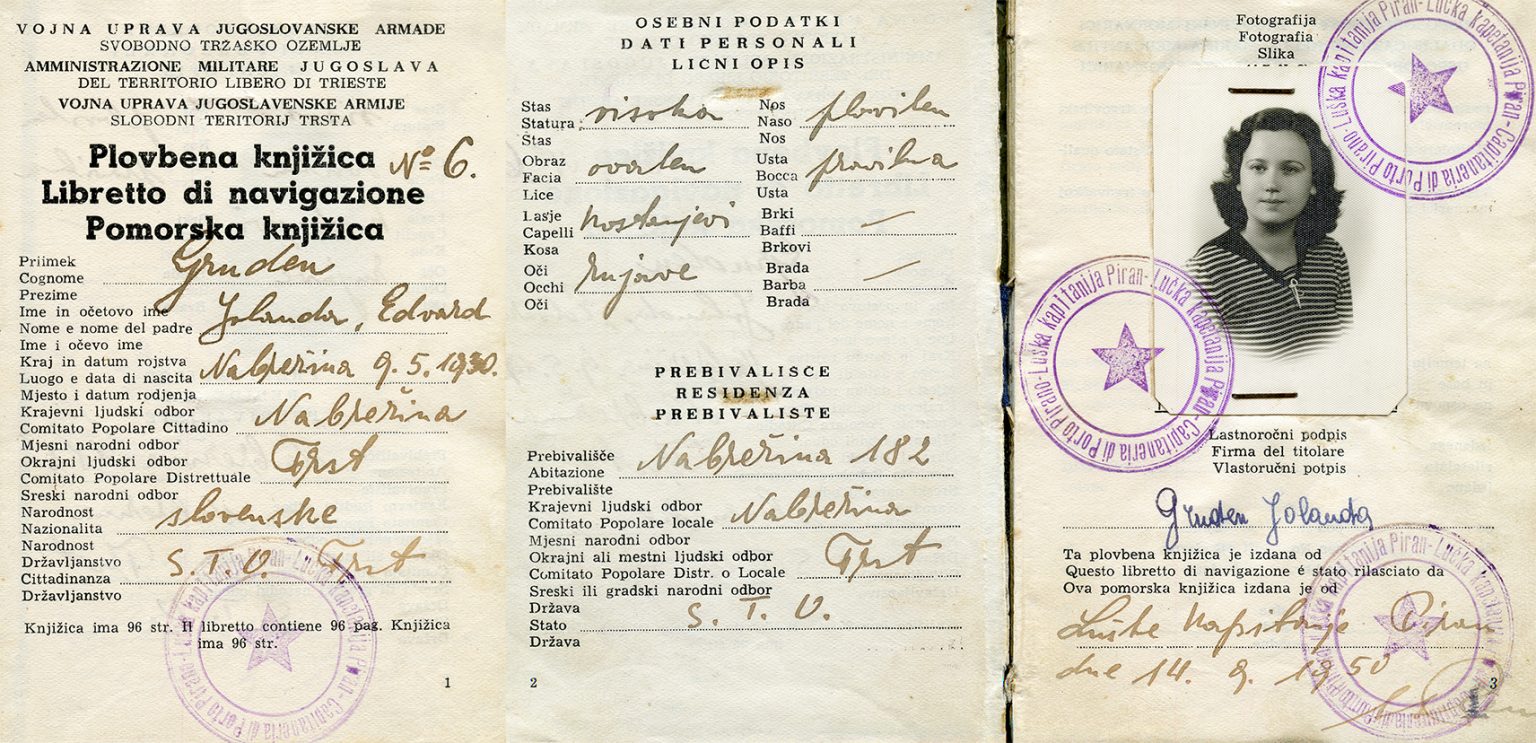 VOJNA UPRAVA JUGOSLOVANSKE ARMADE
SVOBODNO TRŽAŠKO OZEMLJE
AMMINISTRAZIONE MILITARE JUGOSLAVA
DEL TERRITORIO LIBERO DI TRIESTE
VOJNA UPRAVA JUGOSLAVENSKE ARMIJE
SLOBODNI TERITORIJ TRSTA
Plovbena knjižica
Nº 6.
Libretto di navigazione
Pomorska knjižica
Priimek
Cognome Gruden
Prezime
Ime in očetovo ime
Nome e nome del padre Jolanda, Edvard
Ime i očevo ime
Kraj in datum rojstva
Luogo e data di nascita Nabrežina 9.5.1930.
Mjesto i datum rodjenja
Krajevni ljudski odbor
Comitato Popolare Cittadino Nabrežina
Mjesni narodni odbor
Okrajni ljudski odbor
Comitato Popolare Distrettuale Trst
Sreski narodni odbor
Narodnost
Nazionalita slovenske
Narodnost
Državljanstvo
Cittadinanza S. T. O. Trst
Državljanstvo
Knjižica ima 96 str. Il libretto contiene 96 pag. Knjižica
ima 96 str.
Luška Kapitanija Piran-Lučka Kapetanija Piran-Capitaneria di Porto Pirano
1
OSEBNI PODATKI
DATI PERSONALI
LICNI OPIS
Stas
Statura visoka
Stas
Obraz
Facia ovalen
Lice
Lasje
Capelli kostanjevi
Kosa
Oči
Occhi rujave
Oči
Nos
Naso pravilen
Nos
Usta
Bocca pravilna
Usta
Brki
Baffi —
Brkovi
Brada
Barba —
Brada
PREBIVALIŠCE
RESIDENZA
PREBIVALIŠTE
Prebivališče
Abitazione Nabrežina 182
Prebivalište
Krajevni ljudski odbor
Comitato Popolare locale Nabrežina
Mjesni narodni odbor
Okrajni ali mestni ljudski odbor
Comitato Popolare Distr. o Locale Trst
Sreski ili gradski narodni odbor
Država
Stato S. T. O.
Država
2
Fotografija
Fotografia
Slika
Luška Kapitanija Piran-Lučka Kapetanija Piran-Capitaneria di Porto Pirano
Luška Kapitanija Piran-Lučka Kapetanija Piran-Capitaneria di Porto Pirano
Lastnoročni podpis
Firma del titolare
Vlastoručni potpis
Gruden Jolanda
Ta plovbena knjižica je izdana od
Questo libretto di navigazione é stato rilasciato da
Ova pomorska knjižica izdana je od
Luške Kapitanije Piran
dne 14. 9. 1950
Luška Kapitanija Piran-Lučka Kapetanija Piran-Capitaneria di Porto Pirano
3